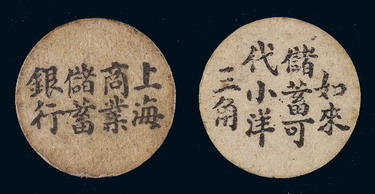 上海
商業
儲蓄
銀行
如來
儲蓄可
代小洋
三角